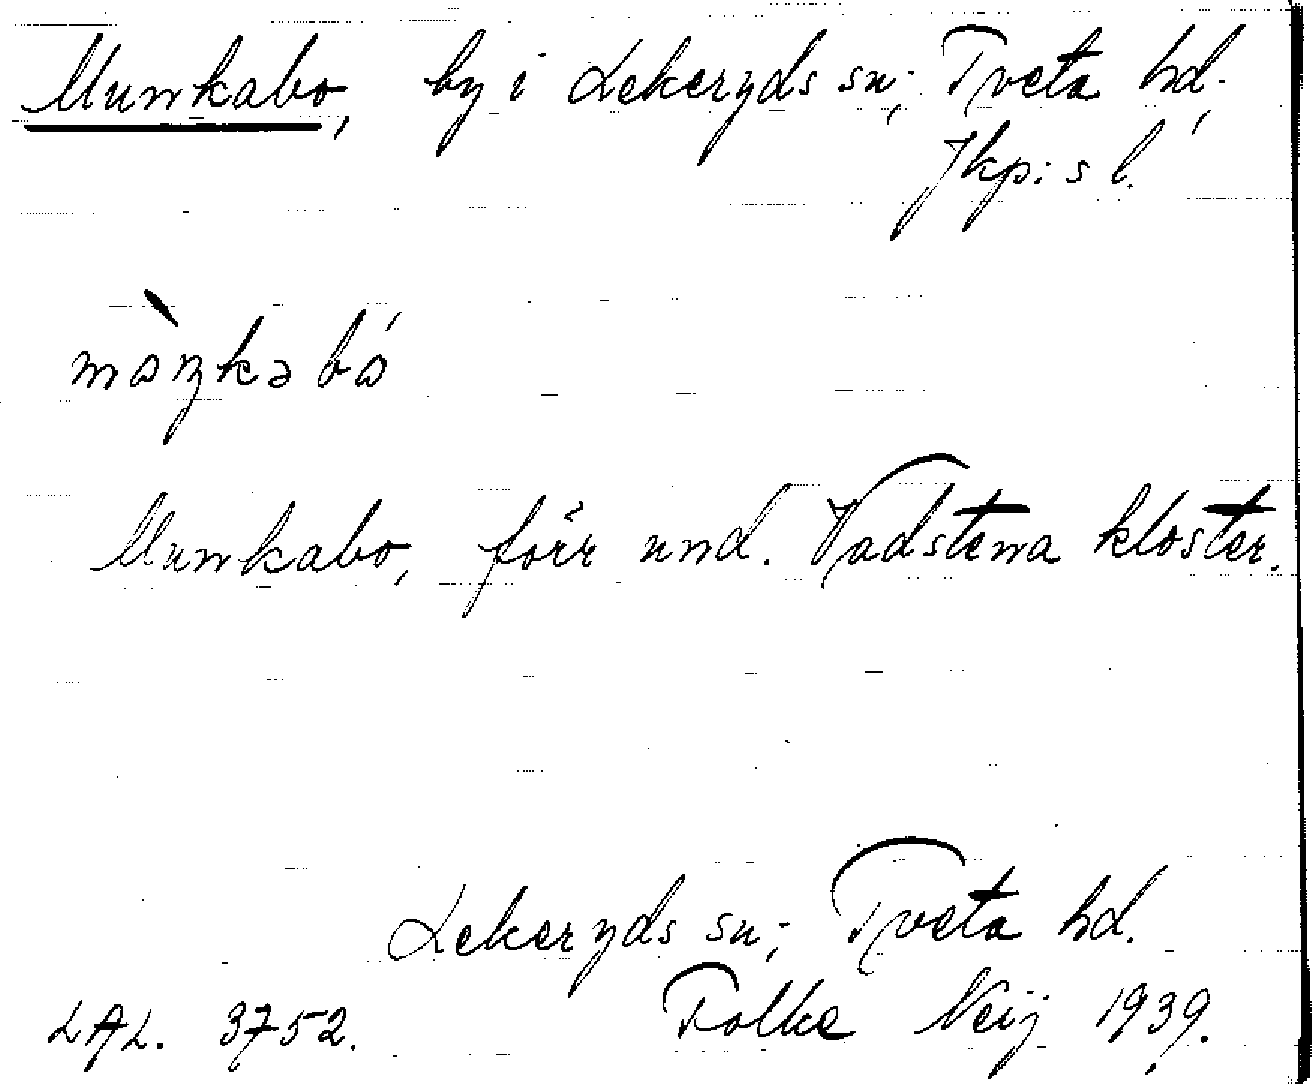 Munkabo, by i Lekeryds sn; Tveta hd.,
Jkp:s l.
Munkabo, förr und. Vadstena kloster.
Lekeryds sn; Tveta hd.
LAL. 3752. Folke Neij 1939.